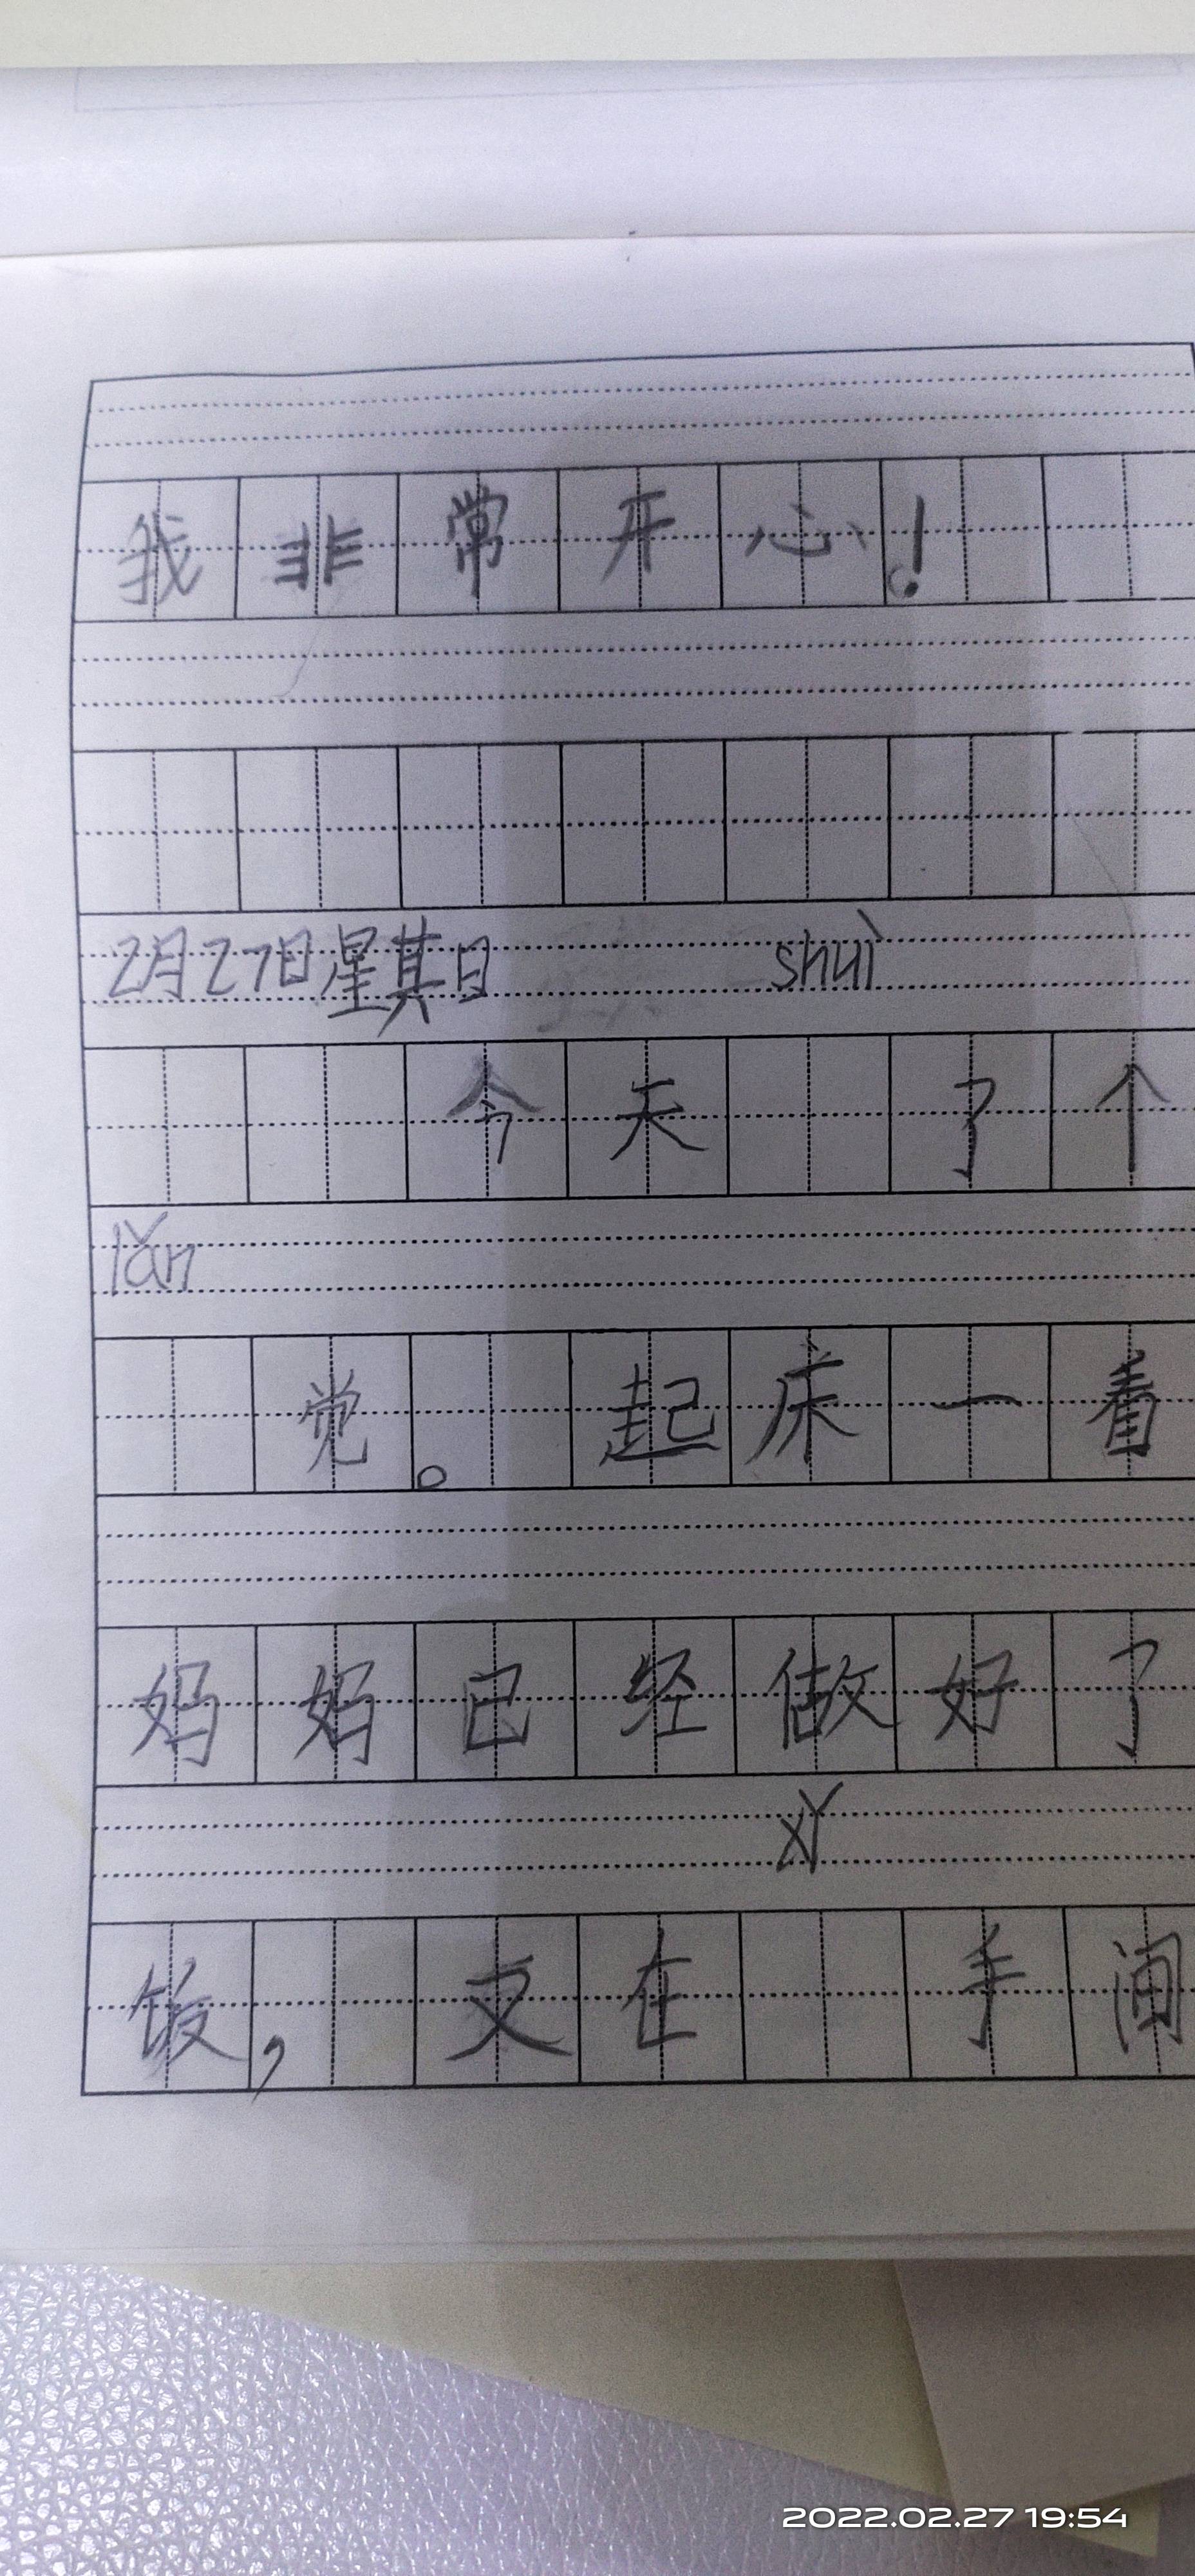 我非常开心!
2月27日星其日 shuì
今天 了个
lǎn
觉。 起床一看
妈妈已经做好了
xǐ
饭, 又在 手间
2022.02.27 19:54